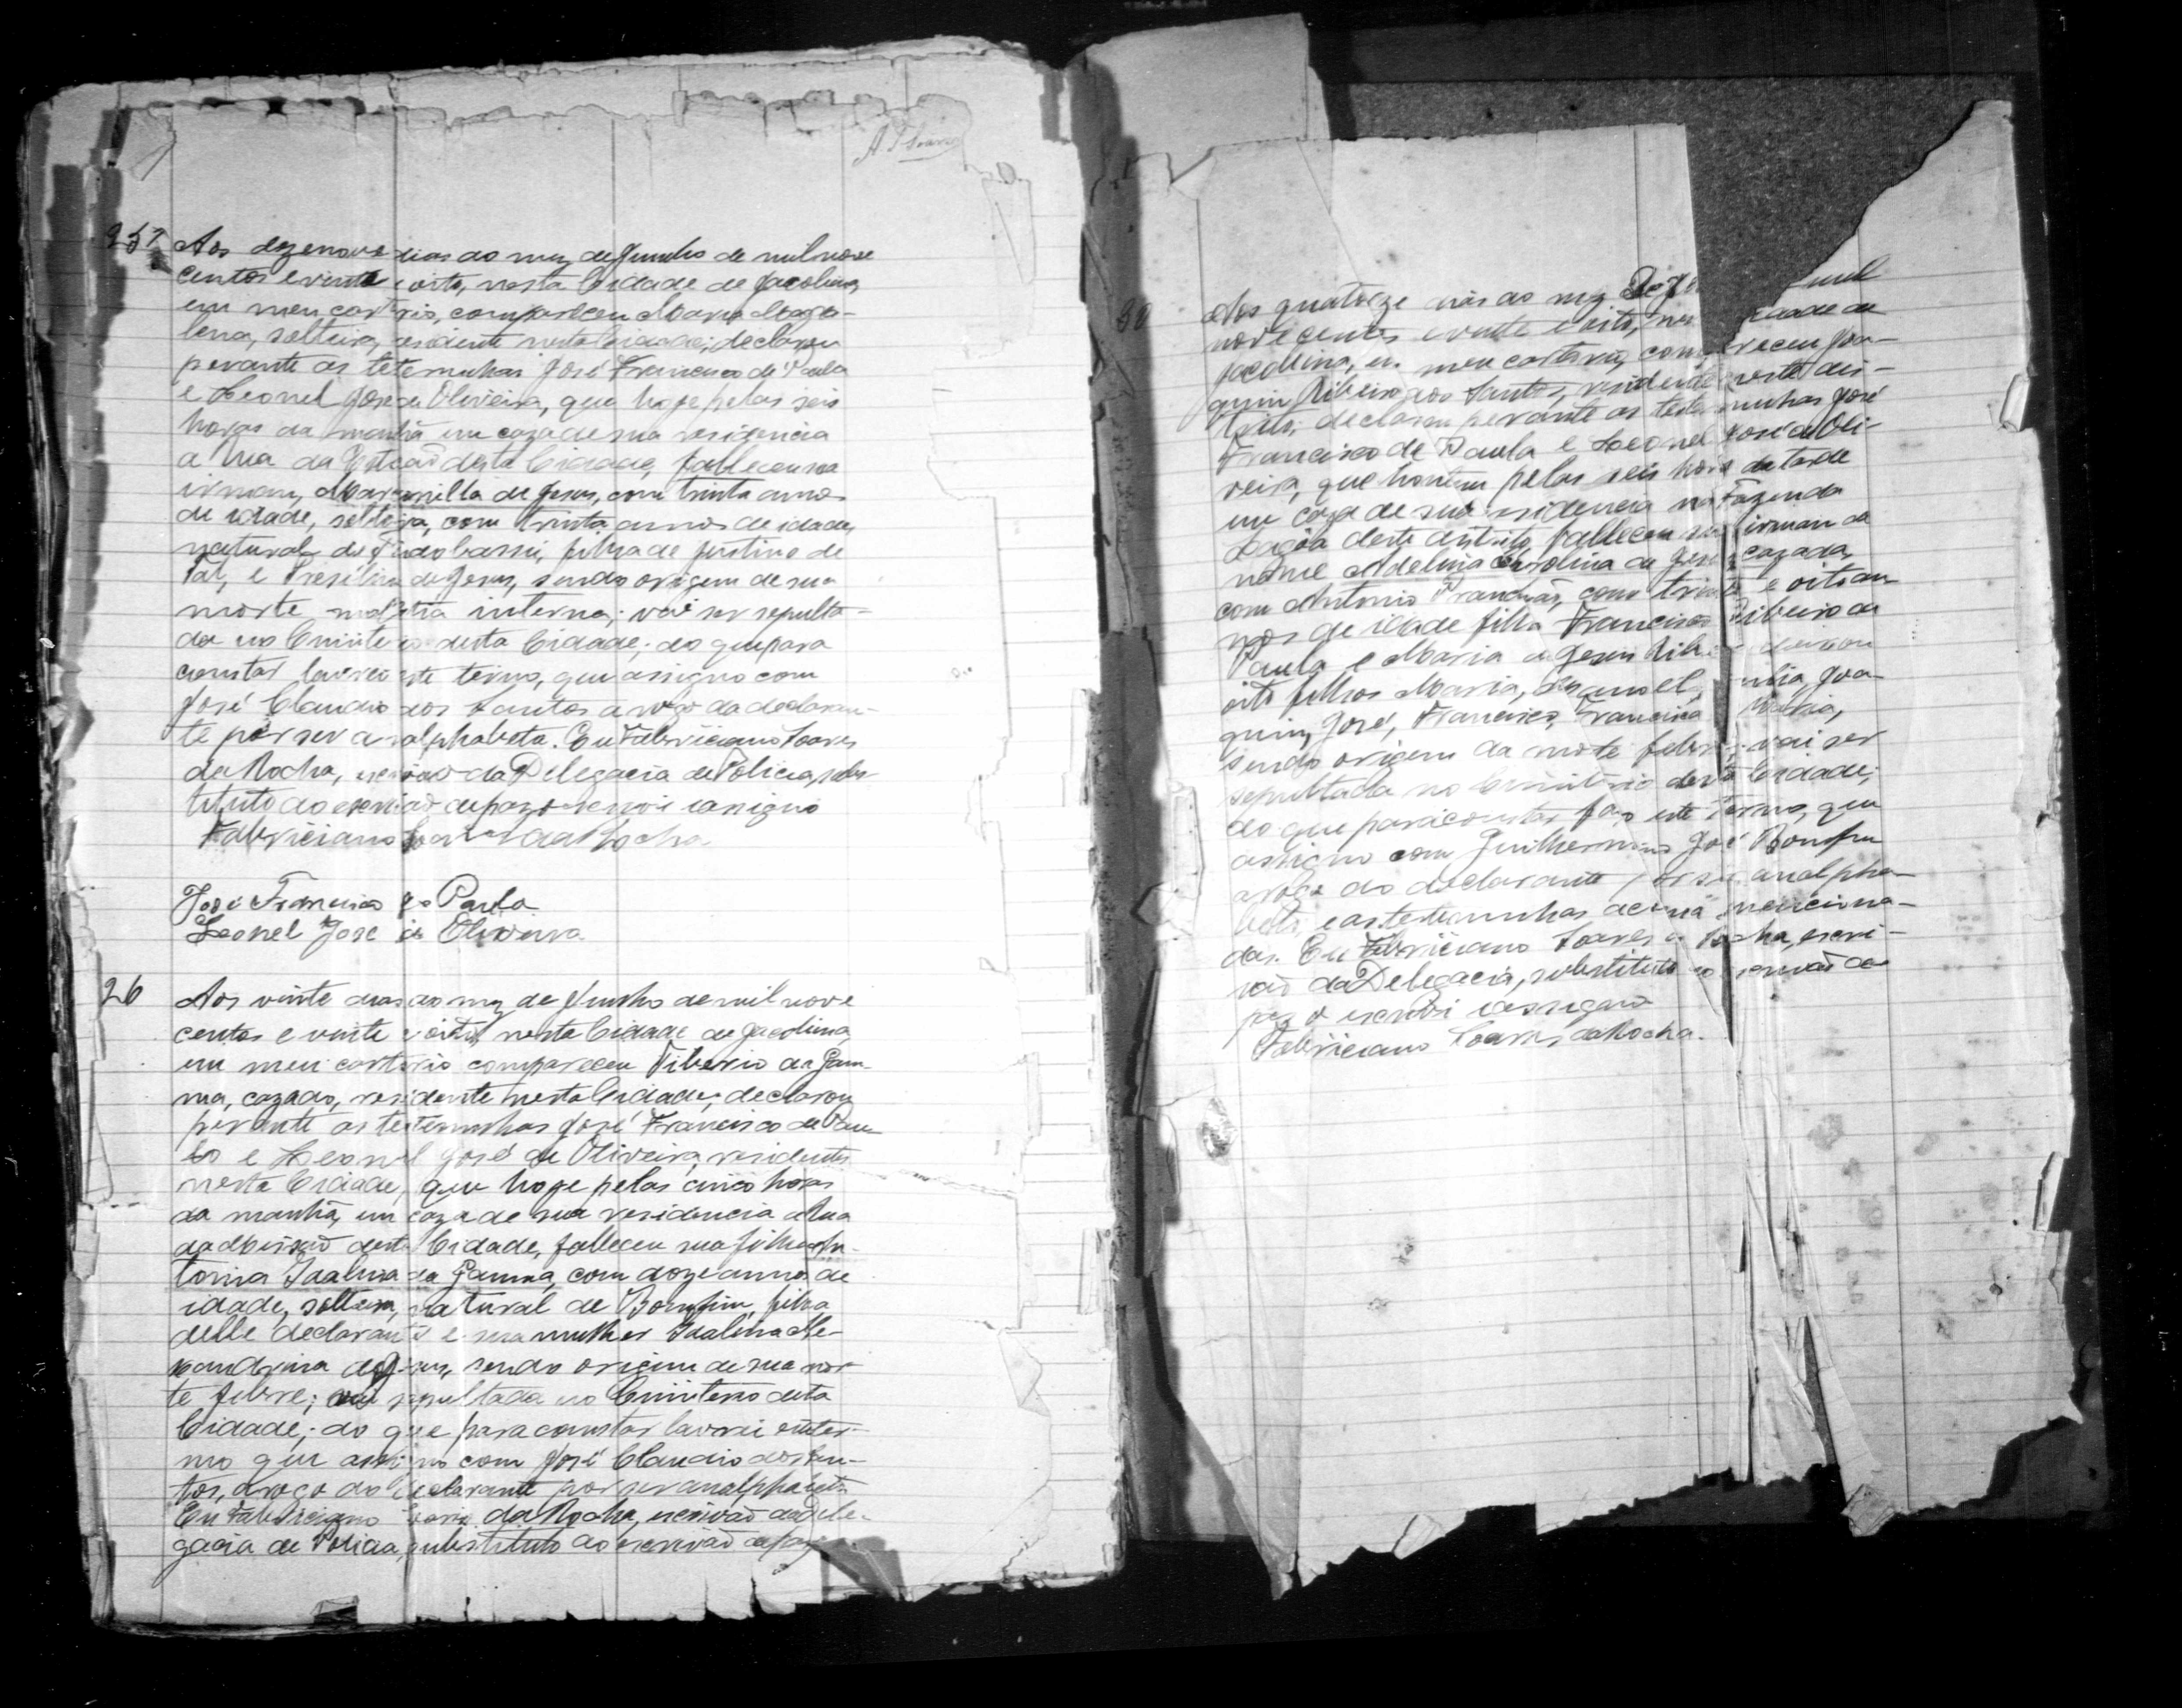 A. Soares
257 Aos dezenove dias do mez de Junho de mil nove
centos e vinte e oito, nesta Cidade de Jacobina,
em meu cartorio, compareceu Maria Maga-
lena, solteira, residente nesta Cidade; declarou
perante as testemunhas José Francisco de Paula
e Leonel José de Oliveira, que hoje pelas seis
horas da manhã em caza de sua residencia
a rua da Estação desta Cidade, falleceu sua
irman, de Jesus, com trinta annos
de idade, solteira, com trinta annos de idade,
natural de filha de Justino de
Tal, e de Jesus, sendo origem de sua
morte molestia interna; vai ser sepulta-
da no Cimiterio desta Cidade; do que para
constar lavrei este termo, que assigno com
José Claudio dos Santos a rogo da declaran-
te por ser analphabeta. Eu Fabriciano Soares
da Rocha, escrivão da Delegacia de Policia, subs-
tituto do escrivão de paz o escrevi e assigno
Fabriciano Soares da Rocha
José Francisco de Paula
Leonel José de Oliveira
26 Aos vinte dias do mez de Junho de mil nove
centos e vinte e oito, nesta Cidade de Jacobina,
em meu cartorio compareceu Tiberio da Gam-
ma, cazado, residente nesta Cidade; declarou
perante as testemunhas José Francisco de Pau-
la e Leonel José de Oliveira, residentes
nesta Cidade, que hoje pelas cinco horas
da manhã, em caza de sua residencia a rua
da desta Cidade, falleceu sua filha An-
tonia Idalina da Gamma, com doze annos de
idade, solteira, natural de Bomfim, filha
delle declarante e sua mulher Idalina Ale-
xandrina de Jesus, sendo origem de sua mor-
te febre; vai sepultada no Cimiterio desta
Cidade; do que para constar lavrei este ter-
mo que assigno com José Claudio dos San-
tos, a rogo do declarante por ser analphabeto
Eu Fabriciano Soares da Rocha, escrivão da Dele-
gacia de Policia, substituto do escrivão de paz
Aos quatorze dias do mez de mil
novecentos e vinte e oito, nesta Cidade de
Jacobina, em meu cartorio, compareceu Joa-
quim Ribeiro dos Santos, residente neste dis-
tricto; declarou perante as testemunhas José
Francisco de Paula e Leonel José de Oli-
veira, que hontem pelas seis horas da tarde
em caza de sua residencia na Fazenda
Lagôa deste distrito, falleceu sua irman de
nome Adelina Carolina de Jesus cazada
com Antonio com trinta e oito an-
nos de idade filha Francisco Ribeiro de
Paula e Maria de Jesus deixou
oito filhos Maria, Manoel, Joa-
quim, José, Francisco, Francisca Maria,
sendo origem da morte febre; vai ser
sepultada no Cimiterio desta Cidade;
do que para constar faço este termo, que
assigno com Guilhermino José Bomfim
a rogo do declarante por ser analpha-
beto, e as testemunhas acima menciona-
das. Eu Fabriciano Soares da Rocha, escri-
vão da Delegacia, substituto do escrivão de
paz o escrevi e assigno
Fabriciano Soares da Rocha.